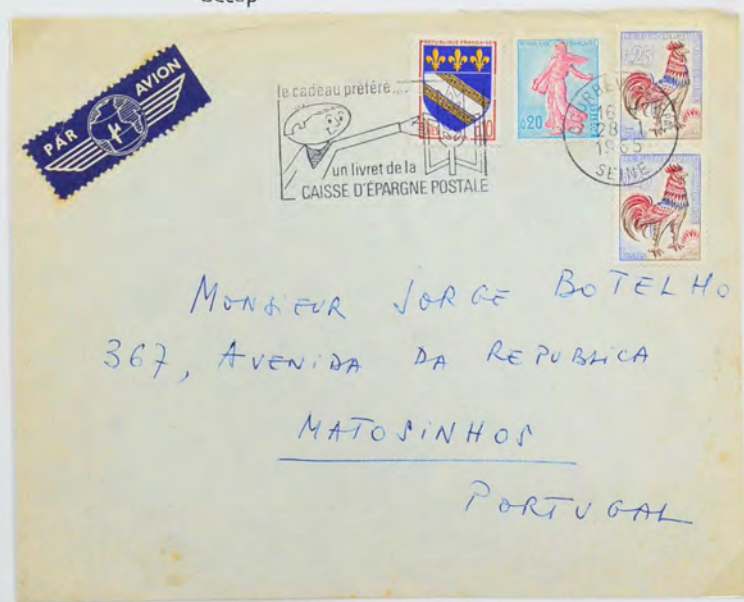 PAR AVION
le cadeau préféré....
un livret de la
CAISSE D'ÉPARGNE POSTALE
0,20
0,25
16
28 - 1
1965
SEINE
MONSIEUR JORGE BOTELHO
367, AVENIDA DA REPUBLICA
MATOSINHOS
PORTUGAL